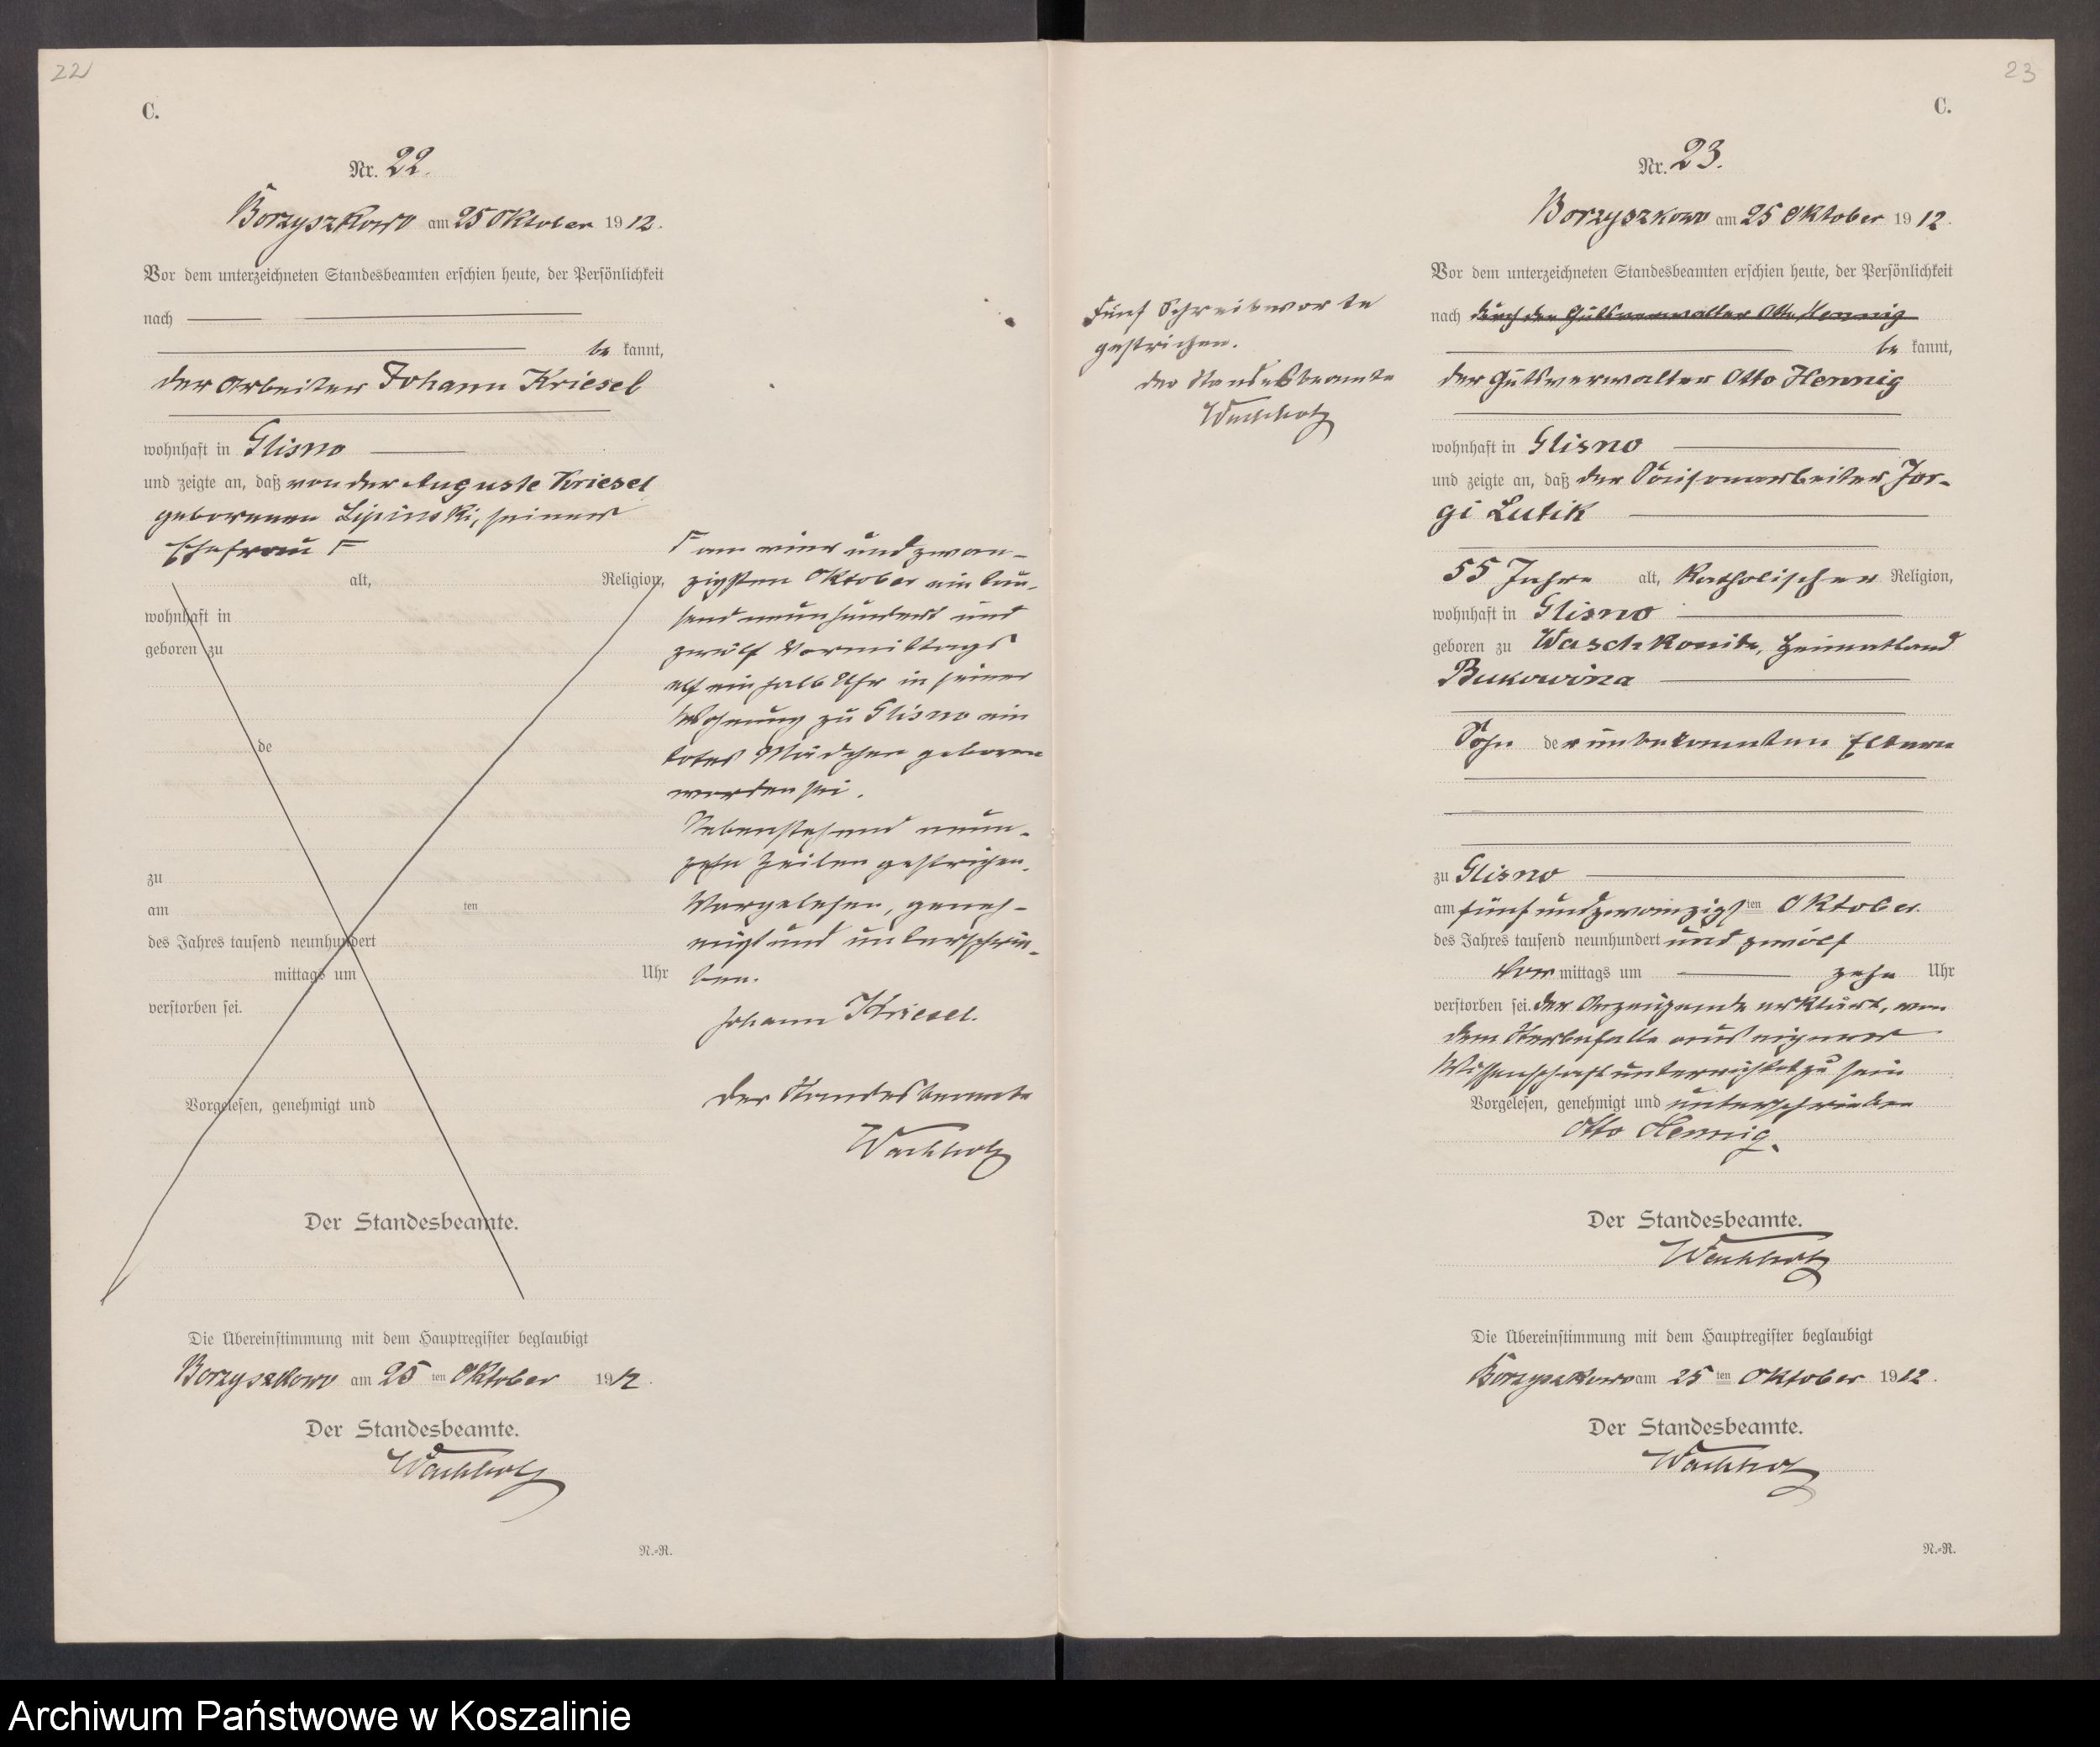 22
C.
Nr. 22.
Borzyszkowo am 25 Oktober 1912.
Vor dem unterzeichneten Standesbeamten erschien heute, der Persönlichkeit
nach
be kannt,
der Arbeiter Johann Kriesel
wohnhaft in Glisno
und zeigte an, daß von der Auguste Kriesel
geborenen Lipinski, seiner
Ehefrau
alt, Religion,
wohnhaft in
geboren zu
de
zu
am ten
des Jahres tausend neunhundert
mittags um Uhr
verstorben sei.
Vorgelesen, genehmigt und
Der Standesbeamte.
Die Übereinstimmung mit dem Hauptregister beglaubigt
Borzyszkowo am 25 ten Oktober 1912.
Der Standesbeamte.
Wachholz
N.-R.
am einundzwan-
zigsten Oktober ein tau-
send neunhundert und
zwölf Vormittags
elf ein halb Uhr in seiner
Wohnung zu Glisno ein
totes Mädchen geboren
worden sei.
Nebenstehend neun-
zehn Zeilen gestrichen.
Vorgelesen, geneh-
migt und unterschrie-
ben.
Johann Kriesel.
Der Standesbeamte
Wachholz
23
C.
Nr. 23.
Borzyszkowo am 25 Oktober 1912.
Vor dem unterzeichneten Standesbeamten erschien heute, der Persönlichkeit
nach durch den Gutsverwalter Otto Hennig
be kannt,
der Gutsverwalter Otto Hennig
wohnhaft in Glisno
und zeigte an, daß der Saisonarbeiter Jor-
gi Lutik
55 Jahre alt, katholischer Religion,
wohnhaft in Glisno
geboren zu Waschkoutz, Heimatland
Bukowina
Sohn der unbekannten Eltern
zu Glisno
am fünfundzwanzigsten Oktober
des Jahres tausend neunhundert und zwölf
Vor mittags um zehn Uhr
verstorben sei. Der Anzeigende erklärt, von
dem Sterbefalle aus eigener
Wissenschaft unterrichtet zu sein
Vorgelesen, genehmigt und unterschrieben
Otto Hennig.
Der Standesbeamte.
Wachholz
Die Übereinstimmung mit dem Hauptregister beglaubigt
Borzyszkowo am 25 ten Oktober 1912.
Der Standesbeamte.
Wachholz
N.-R.
Fünf Schreibworte
gestrichen.
Der Standesbeamte
Wachholz
Archiwum Państwowe w Koszalinie